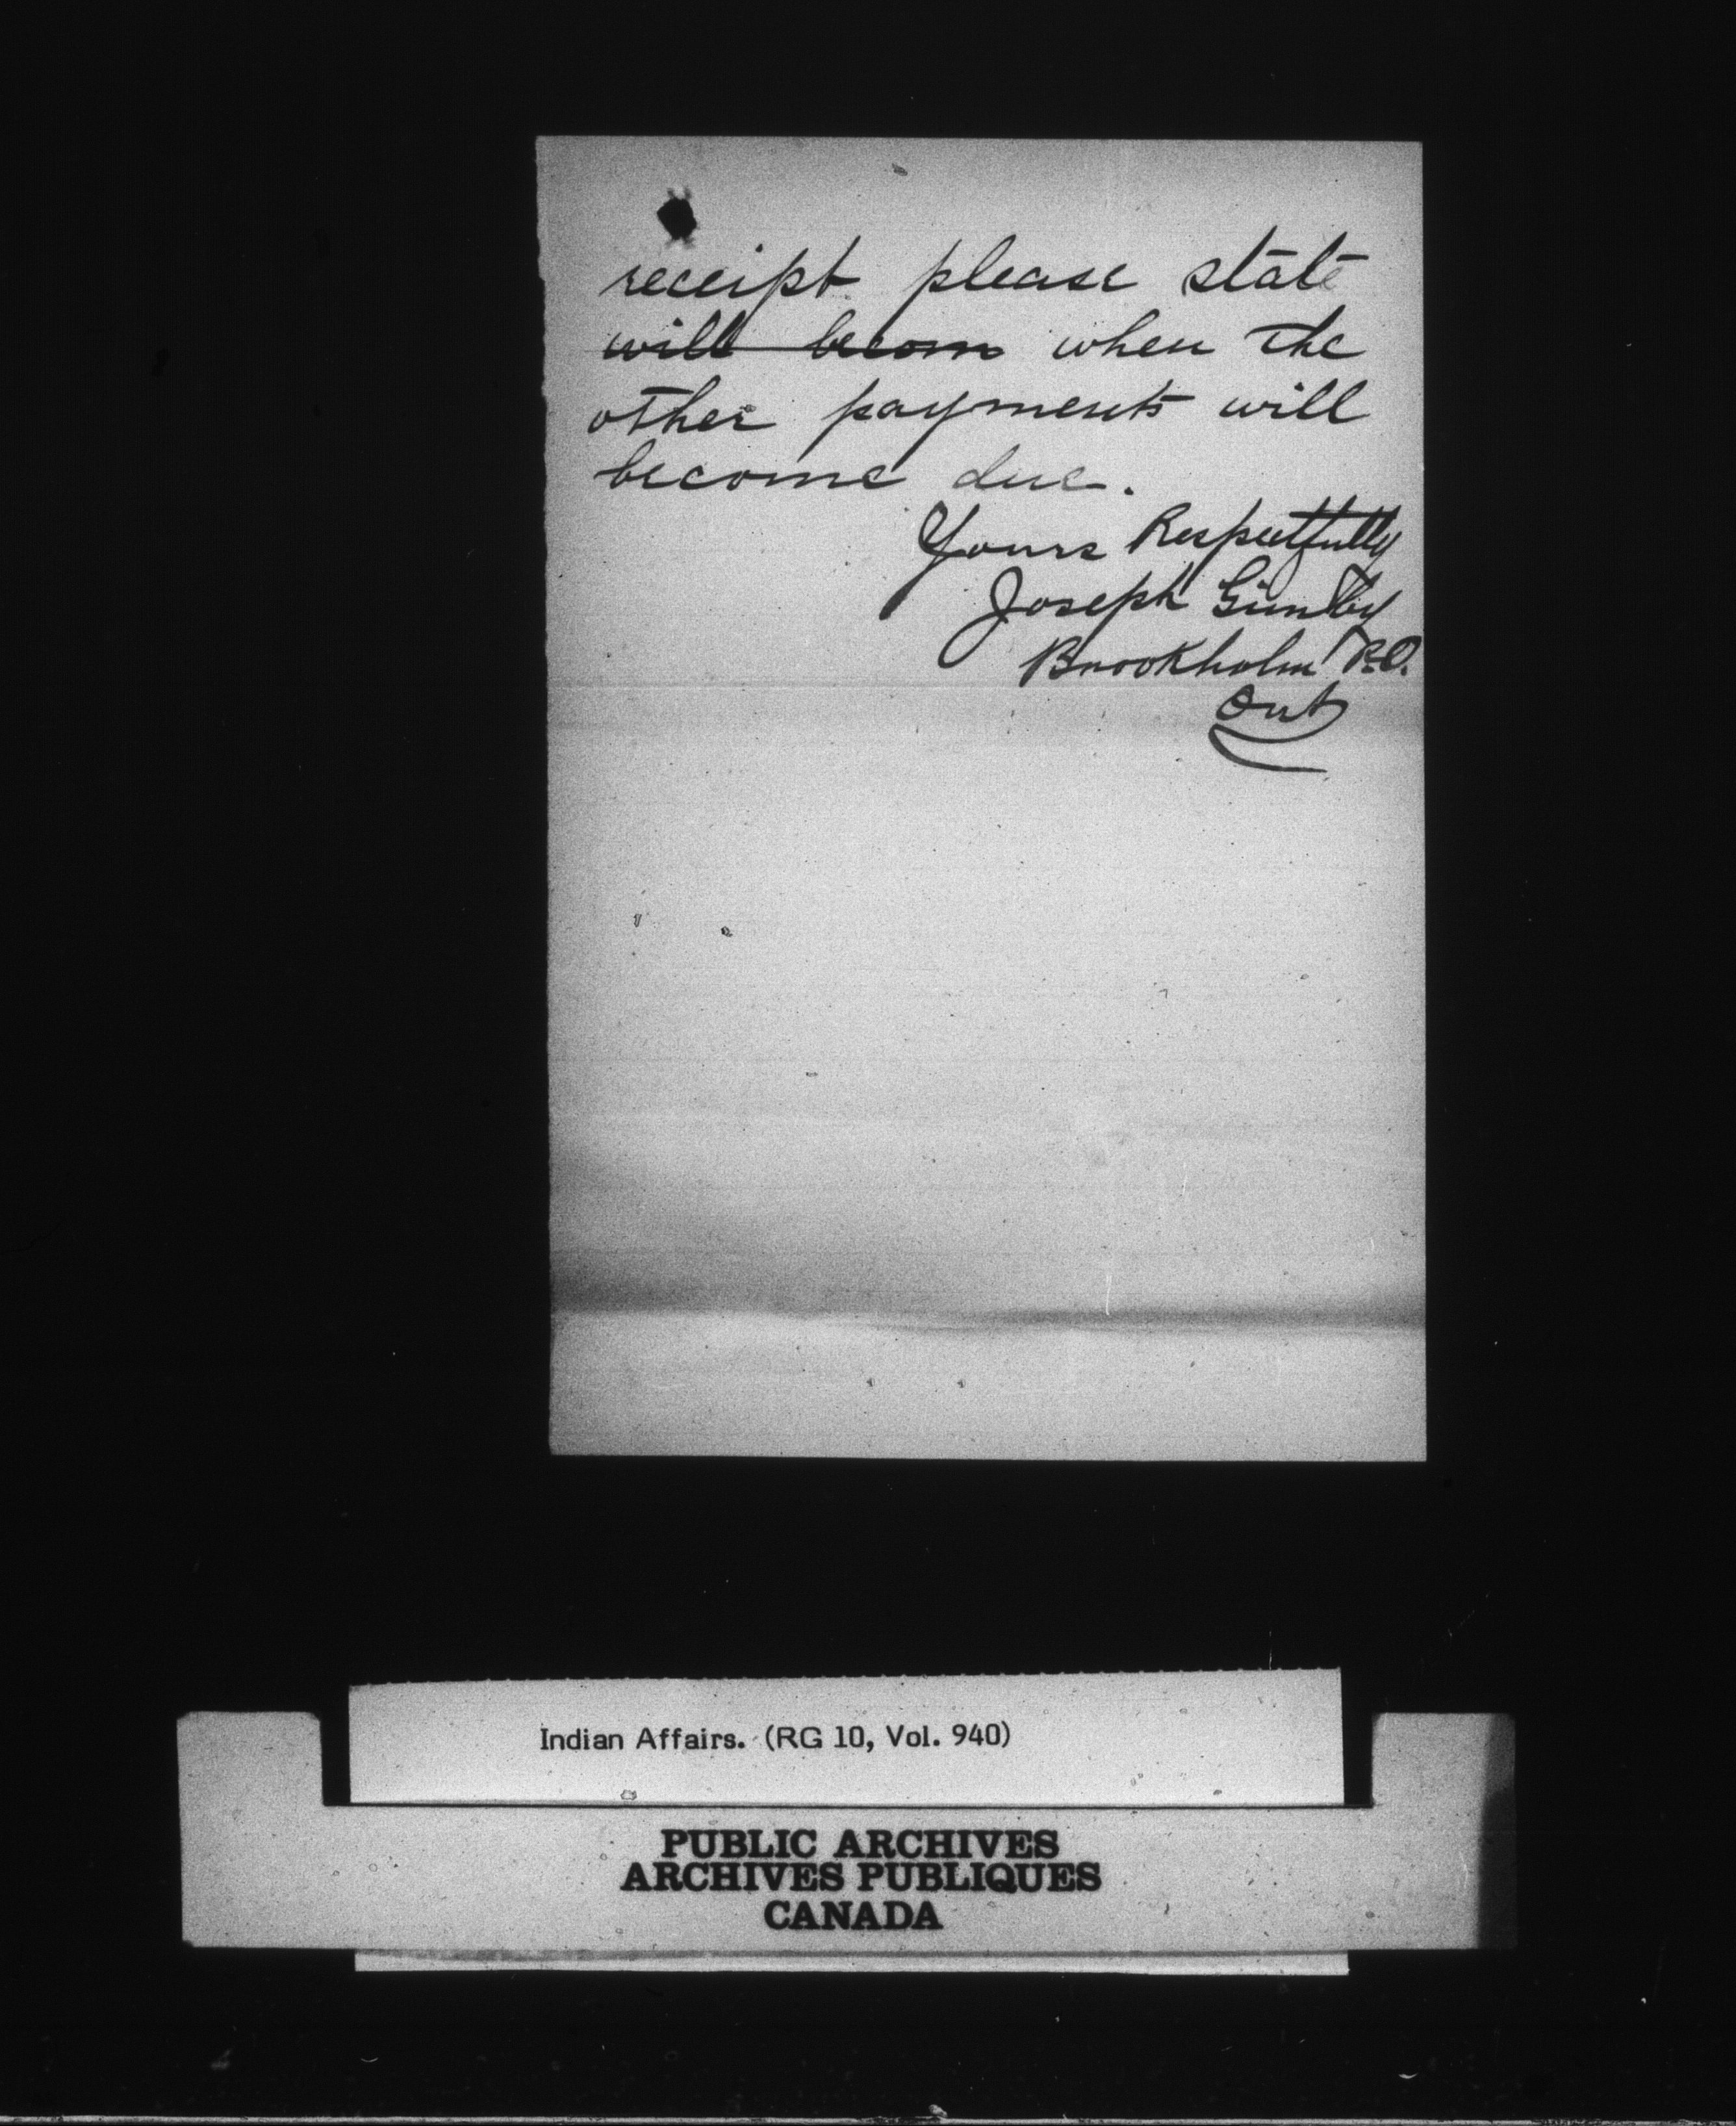 receipt please state
will becom when the
other payments will
become due.
Yours Respectfully
Joseph
Brookholm P.O.
Ont
Indian Affairs. (RG 10, Vol. 940)
PUBLIC ARCHIVES
ARCHIVES PUBLIQUES
CANADA